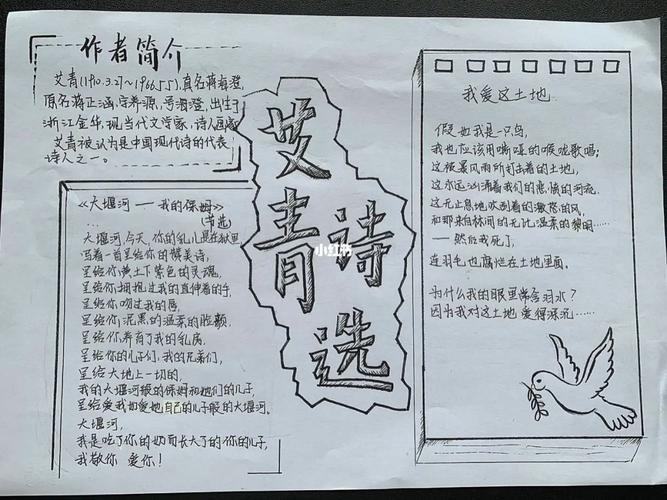 作者简介
艾青(1910.3.27~1966.5.5),真名蒋海澄,
原名蒋正涵,字养源,号海澄,出生于
浙江金华,现当代文学家,诗人画家
艾青被认为是中国现代诗的代表
诗人之一。
《大堰河——我的保姆》
(节选)
…
大堰河,今天,你的乳儿是在狱里
写着一首呈给你的赞美诗,
呈给你黄土下紫色的灵魂,
呈给你拥抱过我的直伸着的手,
呈给你吻过我的唇,
呈给你泥黑的温柔的脸颜,
呈给你养育了我的乳房,
呈给你的儿子们,我的兄弟们,
呈给大地上一切的,
我的大堰河般的保姆和她们的儿子,
呈给爱我如爱她自己的儿子般的大堰河。
大堰河,
我是吃了你的奶而长大了的你的儿子,
我敬你 爱你!
艾青诗选
小红书
我爱这土地
假如我是一只鸟,
我也应该用嘶哑的喉咙歌唱:
这被暴风雨所打击着的土地,
这永远汹涌着我们的悲愤的河流,
这无止息地吹刮着的激怒的风,
和那来自林间的无比温柔的黎明……
——然后我死了,
连羽毛也腐烂在土地里面。
为什么我的眼里常含泪水?
因为我对这土地 爱得深沉……